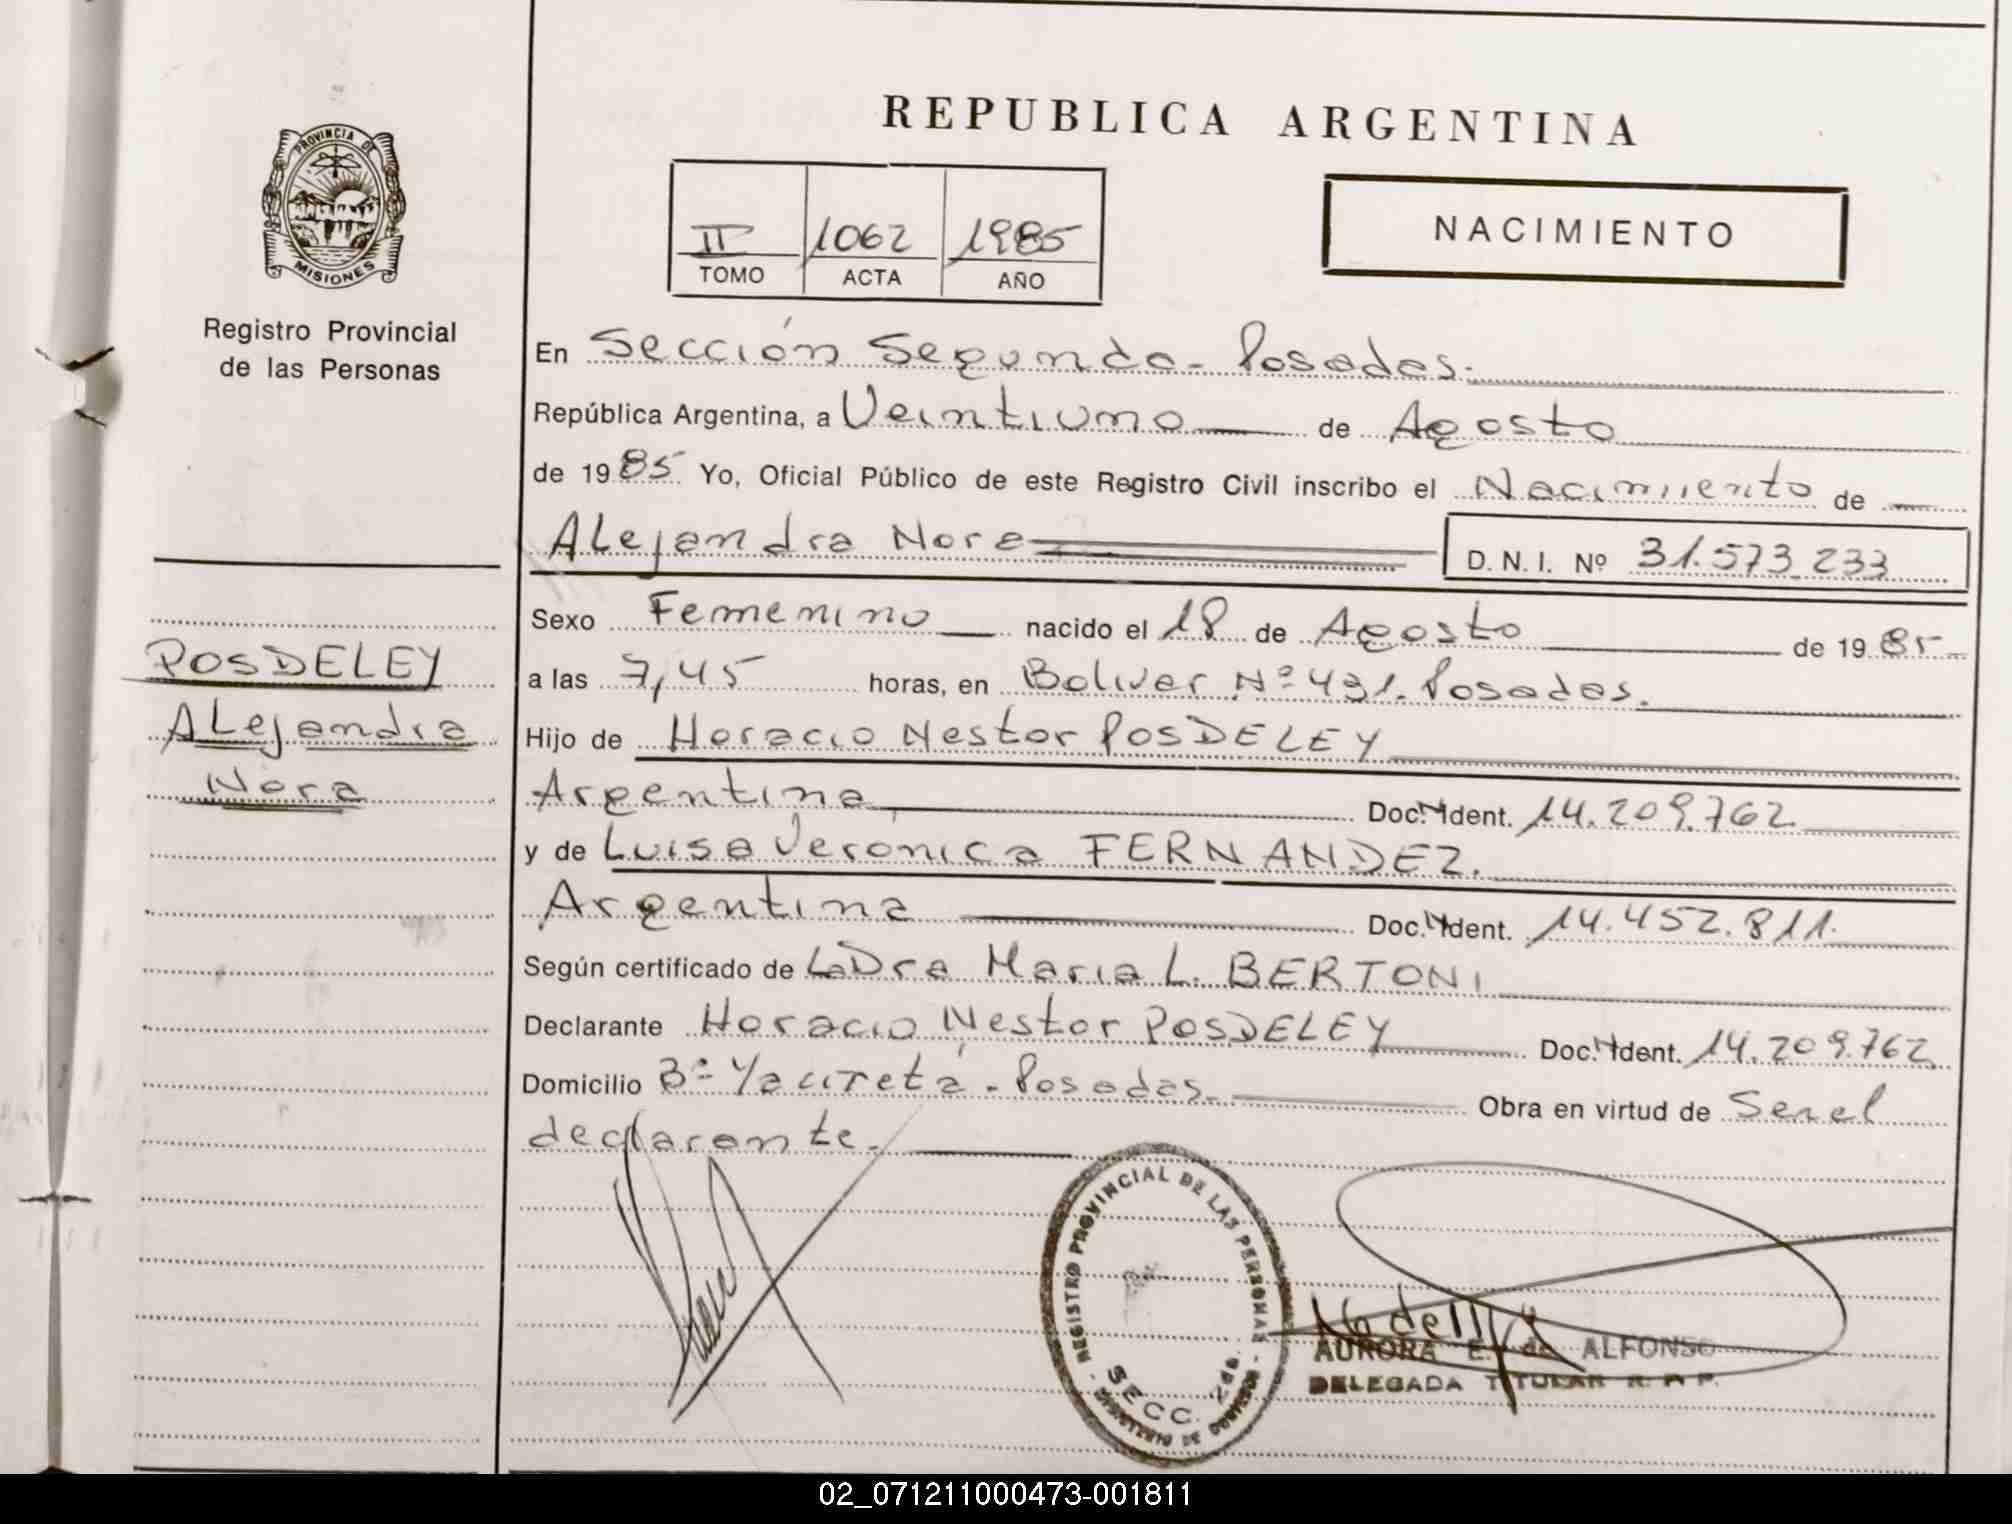 REPUBLICA ARGENTINA
PROVINCIA DE
MISIONES
Registro Provincial
de las Personas
II 1062 1985
TOMO ACTA AÑO
NACIMIENTO
En Sección Segunda - Posadas.
República Argentina, a Veintiuno de Agosto
de 1985 Yo, Oficial Público de este Registro Civil inscribo el Nacimiento de
Alejandra Nora D. N. I. Nº 31.573.233
Sexo Femenino nacido el 18 de Agosto de 1985
POSDELEY
Alejandra
Nora
a las 7,45 horas, en Bolivar Nº 431. Posadas.
Hijo de Horacio Nestor POSDELEY
Argentina Doc. N Ident. 14.209.762
y de Luisa Verónica FERNANDEZ.
Argentina Doc. N Ident. 14.452.811.
Según certificado de La Dra Maria L. BERTONI
Declarante Horacio Nestor POSDELEY Doc. N Ident. 14.209.762
Domicilio Bº Yaciretá - Posadas. Obra en virtud de Ser el
declarante.
REGISTRO PROVINCIAL DE LAS PERSONAS
SECC. 2da.
MINISTERIO DE GOBIERNO
AURORA E. de ALFONSO
DELEGADA TITULAR R. P. P.
02_071211000473-001811